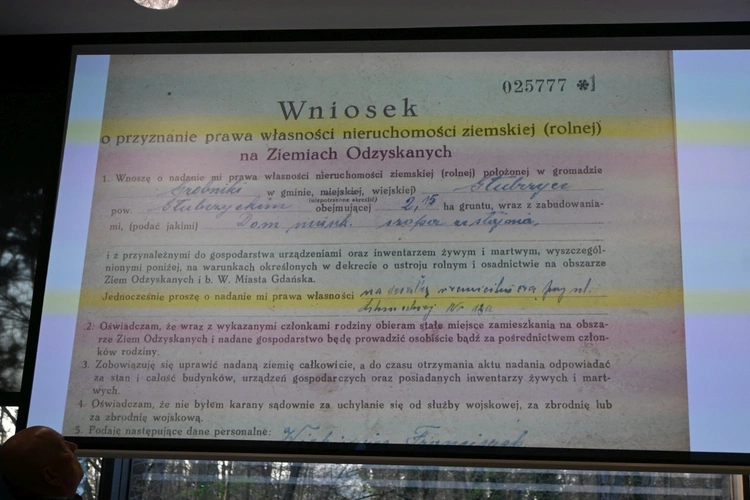 025777 *
Wniosek
o przyznanie prawa własności nieruchomości ziemskiej (rolnej)
na Ziemiach Odzyskanych
1. Wnoszę o nadanie mi prawa własności nieruchomości ziemskiej (rolnej) położonej w gromadzie
Grobniki w gminie, miejskiej, wiejskiej) Głubczyce
(niepotrzebne skreślić)
pow. Głubczyckim obejmującej 2,15 ha gruntu, wraz z zabudowania-
mi, (podać jakimi) Dom mieszk. szopa z stajnią,
i z przynależnymi do gospodarstwa urządzeniami oraz inwentarzem żywym i martwym, wyszczegól-
nionymi poniżej, na warunkach określonych w dekrecie o ustroju rolnym i osadnictwie na obszarze
Ziem Odzyskanych i b. W. Miasta Gdańska.
Jednocześnie proszę o nadanie mi prawa własności na działkę przy ul.
Nr 12a
2. Oświadczam, że wraz z wykazanymi członkami rodziny obieram stałe miejsce zamieszkania na obsza-
rze Ziem Odzyskanych i nadane gospodarstwo będę prowadzić osobiście bądź za pośrednictwem człon-
ków rodziny.
3. Zobowiązuję się uprawić nadaną ziemię całkowicie, a do czasu otrzymania aktu nadania odpowiadać
za stan i całość budynków, urządzeń gospodarczych oraz posiadanych inwentarzy żywych i mart-
wych.
4. Oświadczam, że nie byłem karany sądownie za uchylanie się od służby wojskowej, za zbrodnię lub
za zbrodnię wojskową.
5. Podaję następujące dane personalne: Franciszek